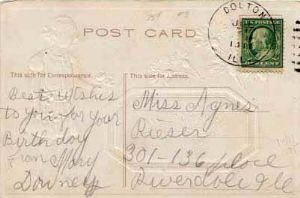 POST CARD
DOLTON
ILL
This side for Correspondence.
This side for Address.
Best Wishes
to You for Your
Birthday
From Mary
Downey
Miss Agnes
Rieser
301-136 place
Riverdale Ill